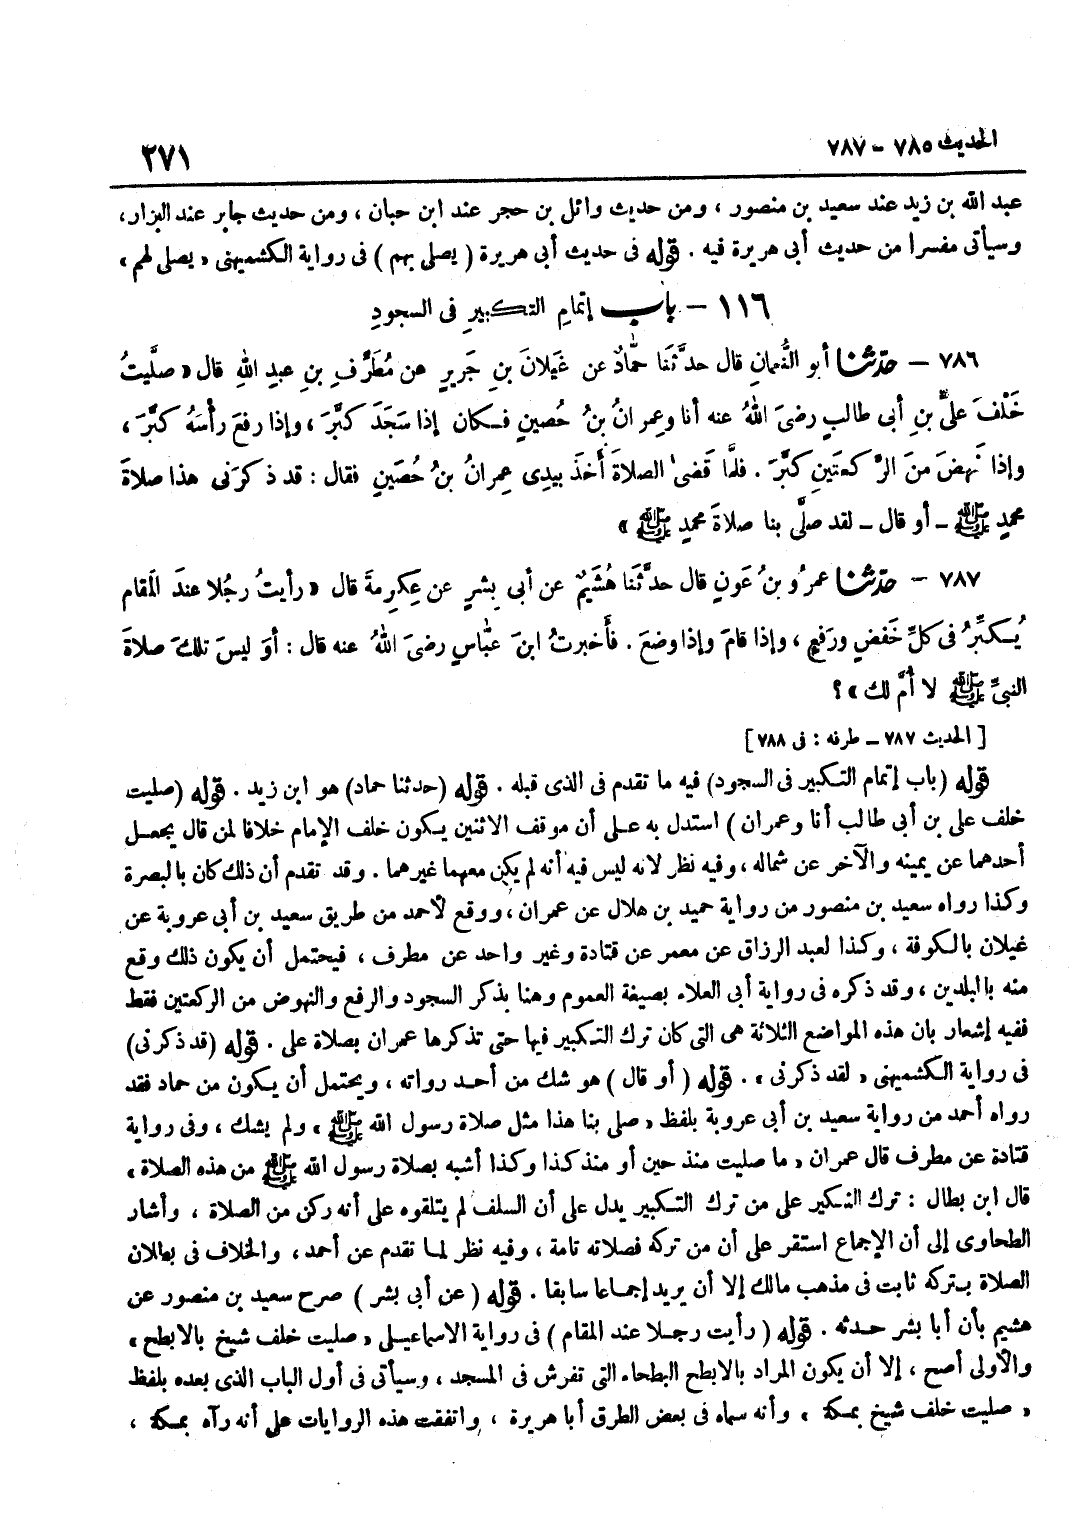 الحديث ٧٨٥ - ٧٨٧
٢٧١
عبد الله بن زيد عند سعيد بن منصور ، ومن حديث وائل بن حجر عند ابن حبان ، ومن حديث جابر عند البزار،
وسيأتى مفسرا من حديث أبى هريرة فيه . قوله فى حديث أبى هريرة ( يصلى بهم ) فى رواية الكشميهنى « يصلى لهم »
١١٦ - باب إتمامِ التكبيرِ فى السجودِ
٧٨٦ - حدّثنا أبو النُّعمانِ قال حدَّثَنا حمّادٌ عن غَيلانَ بنِ جَريرٍ عن مُطَرِّفِ بنِ عبدِ اللهِ قال « صلَّيتُ
خَلْفَ علىِّ بنِ أبى طالبٍ رضىَ اللهُ عنه أنا وعِمرانُ بنُ حُصينٍ فكان إذا سَجَدَ كبَّرَ ، وإذا رفعَ رأسَهُ كبَّرَ ،
وإذا نَهضَ منَ الرَّكعتَينِ كبَّرَ . فلمَّا قَضىٰ الصلاةَ أَخذَ بيدِى عِمرانُ بنُ حُصَينٍ فقال : قد ذكرَنى هذا صلاةَ
محمدٍ ﷺ ــ أو قال ــ لقد صلَّى بنا صلاةَ محمدٍ ﷺ »
٧٨٧ - حدّثنا عمرُو بنُ عَونٍ قال حدَّثَنا هُشَيمٌ عن أبى بِشرٍ عن عِكرِمةَ قال « رأيتُ رجُلا عندَ المَقامِ
يُكبِّرُ فى كلِّ خَفضٍ ورَفعٍ ، وإذا قامَ وإذا وضعَ . فأَخبرتُ ابنَ عبّاسٍ رضىَ اللهُ عنه قال : أوَ ليسَ تلكَ صلاةَ
النبىِّ ﷺ لا أُمَّ لك » ؟
[ الحديث ٧٨٧ ــ طرفه : فى ٧٨٨ ]
قوله (باب إتمام التكبير فى السجود) فيه ما تقدم فى الذى قبله . قوله (حدثنا حماد) هو ابن زيد . قوله (صليت
خلف على بن أبى طالب أنا وعمران ) استدل به على أن موقف الاثنين يكون خلف الإمام خلافا لمن قال يجعل
أحدهما عن يمينه والآخر عن شماله ، وفيه نظر لانه ليس فيه أنه لم يكن معهما غيرهما . وقد تقدم أن ذلك كان بالبصرة
وكذا رواه سعيد بن منصور من رواية حميد بن هلال عن عمران ، ووقع لأحمد من طريق سعيد بن أبى عروبة عن
غيلان بالكوفة ، وكذا لعبد الرزاق عن معمر عن قتادة وغير واحد عن مطرف ، فيحتمل أن يكون ذلك وقع
منه بالبلدين ، وقد ذكره فى رواية أبى العلاء بصيغة العموم وهنا بذكر السجود والرفع والنهوض من الركعتين فقط
ففيه إشعار بان هذه المواضع الثلاثة هى التى كان ترك التكبير فيها حتى تذكرها عمران بصلاة على . قوله (قد ذكرنى)
فى رواية الكشميهنى « لقد ذكرنى » . قوله ( أو قال ) هو شك من أحد رواته ، ويحتمل أن يكون من حماد فقد
رواه أحمد من رواية سعيد بن أبى عروبة بلفظ « صلى بنا هذا مثل صلاة رسول الله ﷺ » ولم يشك ، وفى رواية
قتادة عن مطرف قال عمران « ما صليت منذ حين أو منذ كذا وكذا أشبه بصلاة رسول الله ﷺ من هذه الصلاة »
قال ابن بطال : ترك النكير على من ترك التكبير يدل على أن السلف لم يتلقوه على أنه ركن من الصلاة ، وأشار
الطحاوى إلى أن الإجماع استقر على أن من تركه فصلاته تامة ، وفيه نظر لما تقدم عن أحمد ، والخلاف فى بطلان
الصلاة بتركه ثابت فى مذهب مالك إلا أن يريد إجماعا سابقا . قوله ( عن أبى بشر ) صرح سعيد بن منصور عن
هشيم بأن أبا بشر حدثه . قوله ( رأيت رجلا عند المقام ) فى رواية الاسماعيلى « صليت خلف شيخ بالابطح »
والأولى أصح ، إلا أن يكون المراد بالابطح البطحاء التى تفرش فى المسجد ، وسيأتى فى أول الباب الذى بعده بلفظ
« صليت خلف شيخ بمكة » وأنه سماه فى بعض الطرق أبا هريرة ، واتفقت هذه الروايات على أنه رآه بمكة ،